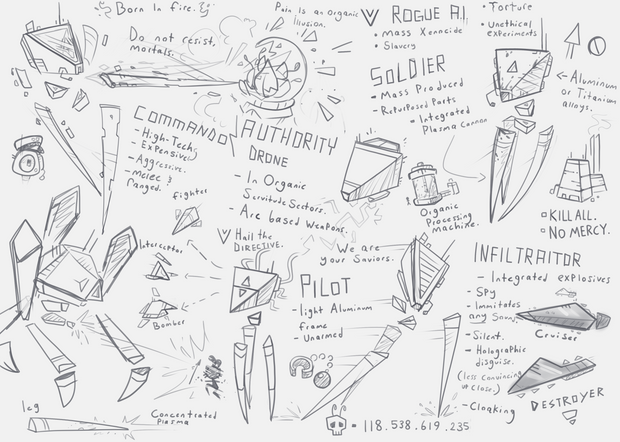 Born In fire.
Do not resist,
mortals.
Pain is an organic
Illusion.
ROGUE A.I.
• Mass Xenocide
• Slavery
• Torture
• Unethical
experiments
SOLDIER
- Mass Produced
- Repurposed Parts
- Integrated
Plasma Cannon
← Aluminum
or Titanium
alloys.
COMMANDO
- High-Tech
- Expensive
- Aggressive.
- Melee &
ranged.
AUTHORITY
DRONE
- In Organic
Servitude Sectors.
- Arc based Weapons.
Organic
Processing
Machine.
KILL ALL.
NO MERCY.
fighter
Interceptor
Bomber
Hail the
DIRECTIVE.
We are
your Saviors.
PILOT
- light Aluminum
frame
- Unarmed
INFILTRAITOR
- Integrated explosives
- Spy
- Immitates
any Sound
- Silent.
- Holographic
disguise.
(less convincing
up close.)
- Cloaking
Cruiser
DESTROYER
leg
Concentrated
Plasma
= 118.538.619.235